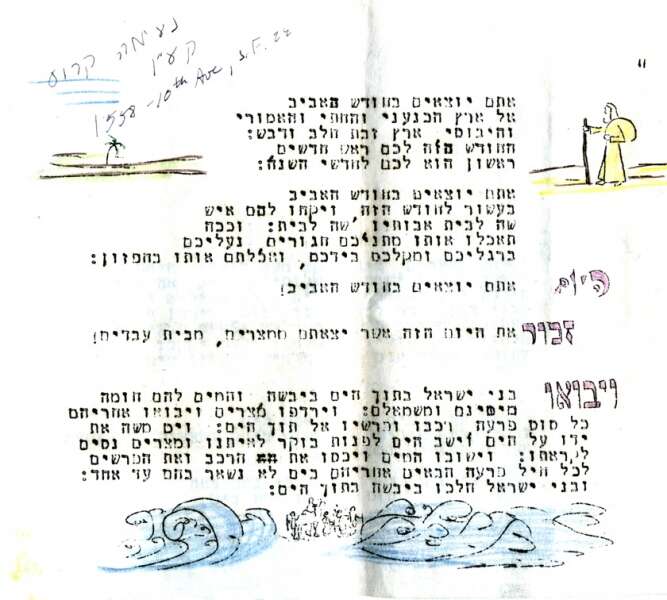 נעימה קרוס
קעין
1558-10th Ave, S.F. 22
"
אתם יוצאים בחודש האביב
אל ארץ הכנעני והחתי והאמורי
והיבוסי, ארץ זבת חלב ודבש:
החודש הזה לכם ראש חדשים
ראשון הוא לכם לחדשי השנה:
אתם יוצאים בחודש האביב
בעשור לחודש הזה, ויקחו להם איש
שה לבית אבותיו, שה לבית: וככה
תאכלו אותו מתניכם חגורים, נעליכם
ברגליכם ומקלכם בידכם, ואכלתם אותו בחפזון:
היום אתם יוצאים בחודש האביב!
זכור את היום הזה אשר יצאתם ממצרים, מבית עבדים!
ויבואו בני ישראל בתוך הים ביבשה, והמים להם חומה
מימינם ומשמאלם: וירדפו מצרים ויבואו אחריהם
כל סוס פרעה, רכבו ופרשיו אל תוך הים: ויט משה את
ידו על הים וישב הים לפנות בוקר לאיתנו ומצרים נסים
לקראתו: וישובו המים ויכסו את הרכב ואת הפרשים
לכל חיל פרעה הבאים אחריהם בים לא נשאר בהם עד אחד:
ובני ישראל הלכו ביבשה בתוך הים: